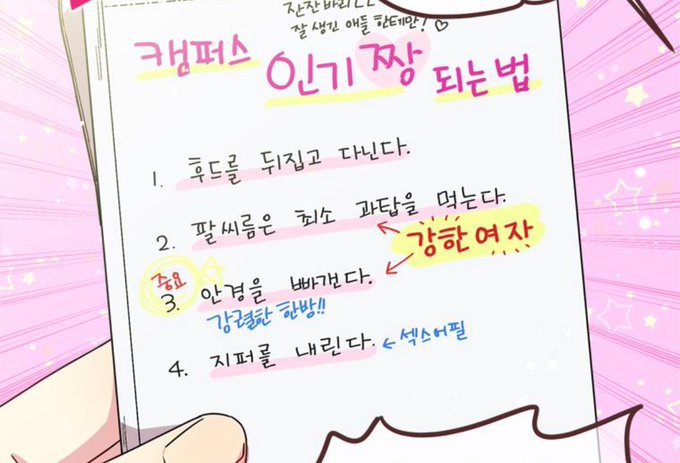 잘 생긴 애들 한테만! ♡
캠퍼스 인기짱 되는 법
1. 후드를 뒤집고 다닌다.
2. 팔씨름은 최소 과탑을 먹는다.
강한 여자
중요
3. 안경을 빠갠다.
강렬한 한방!!
4. 지퍼를 내린다. ← 섹스어필